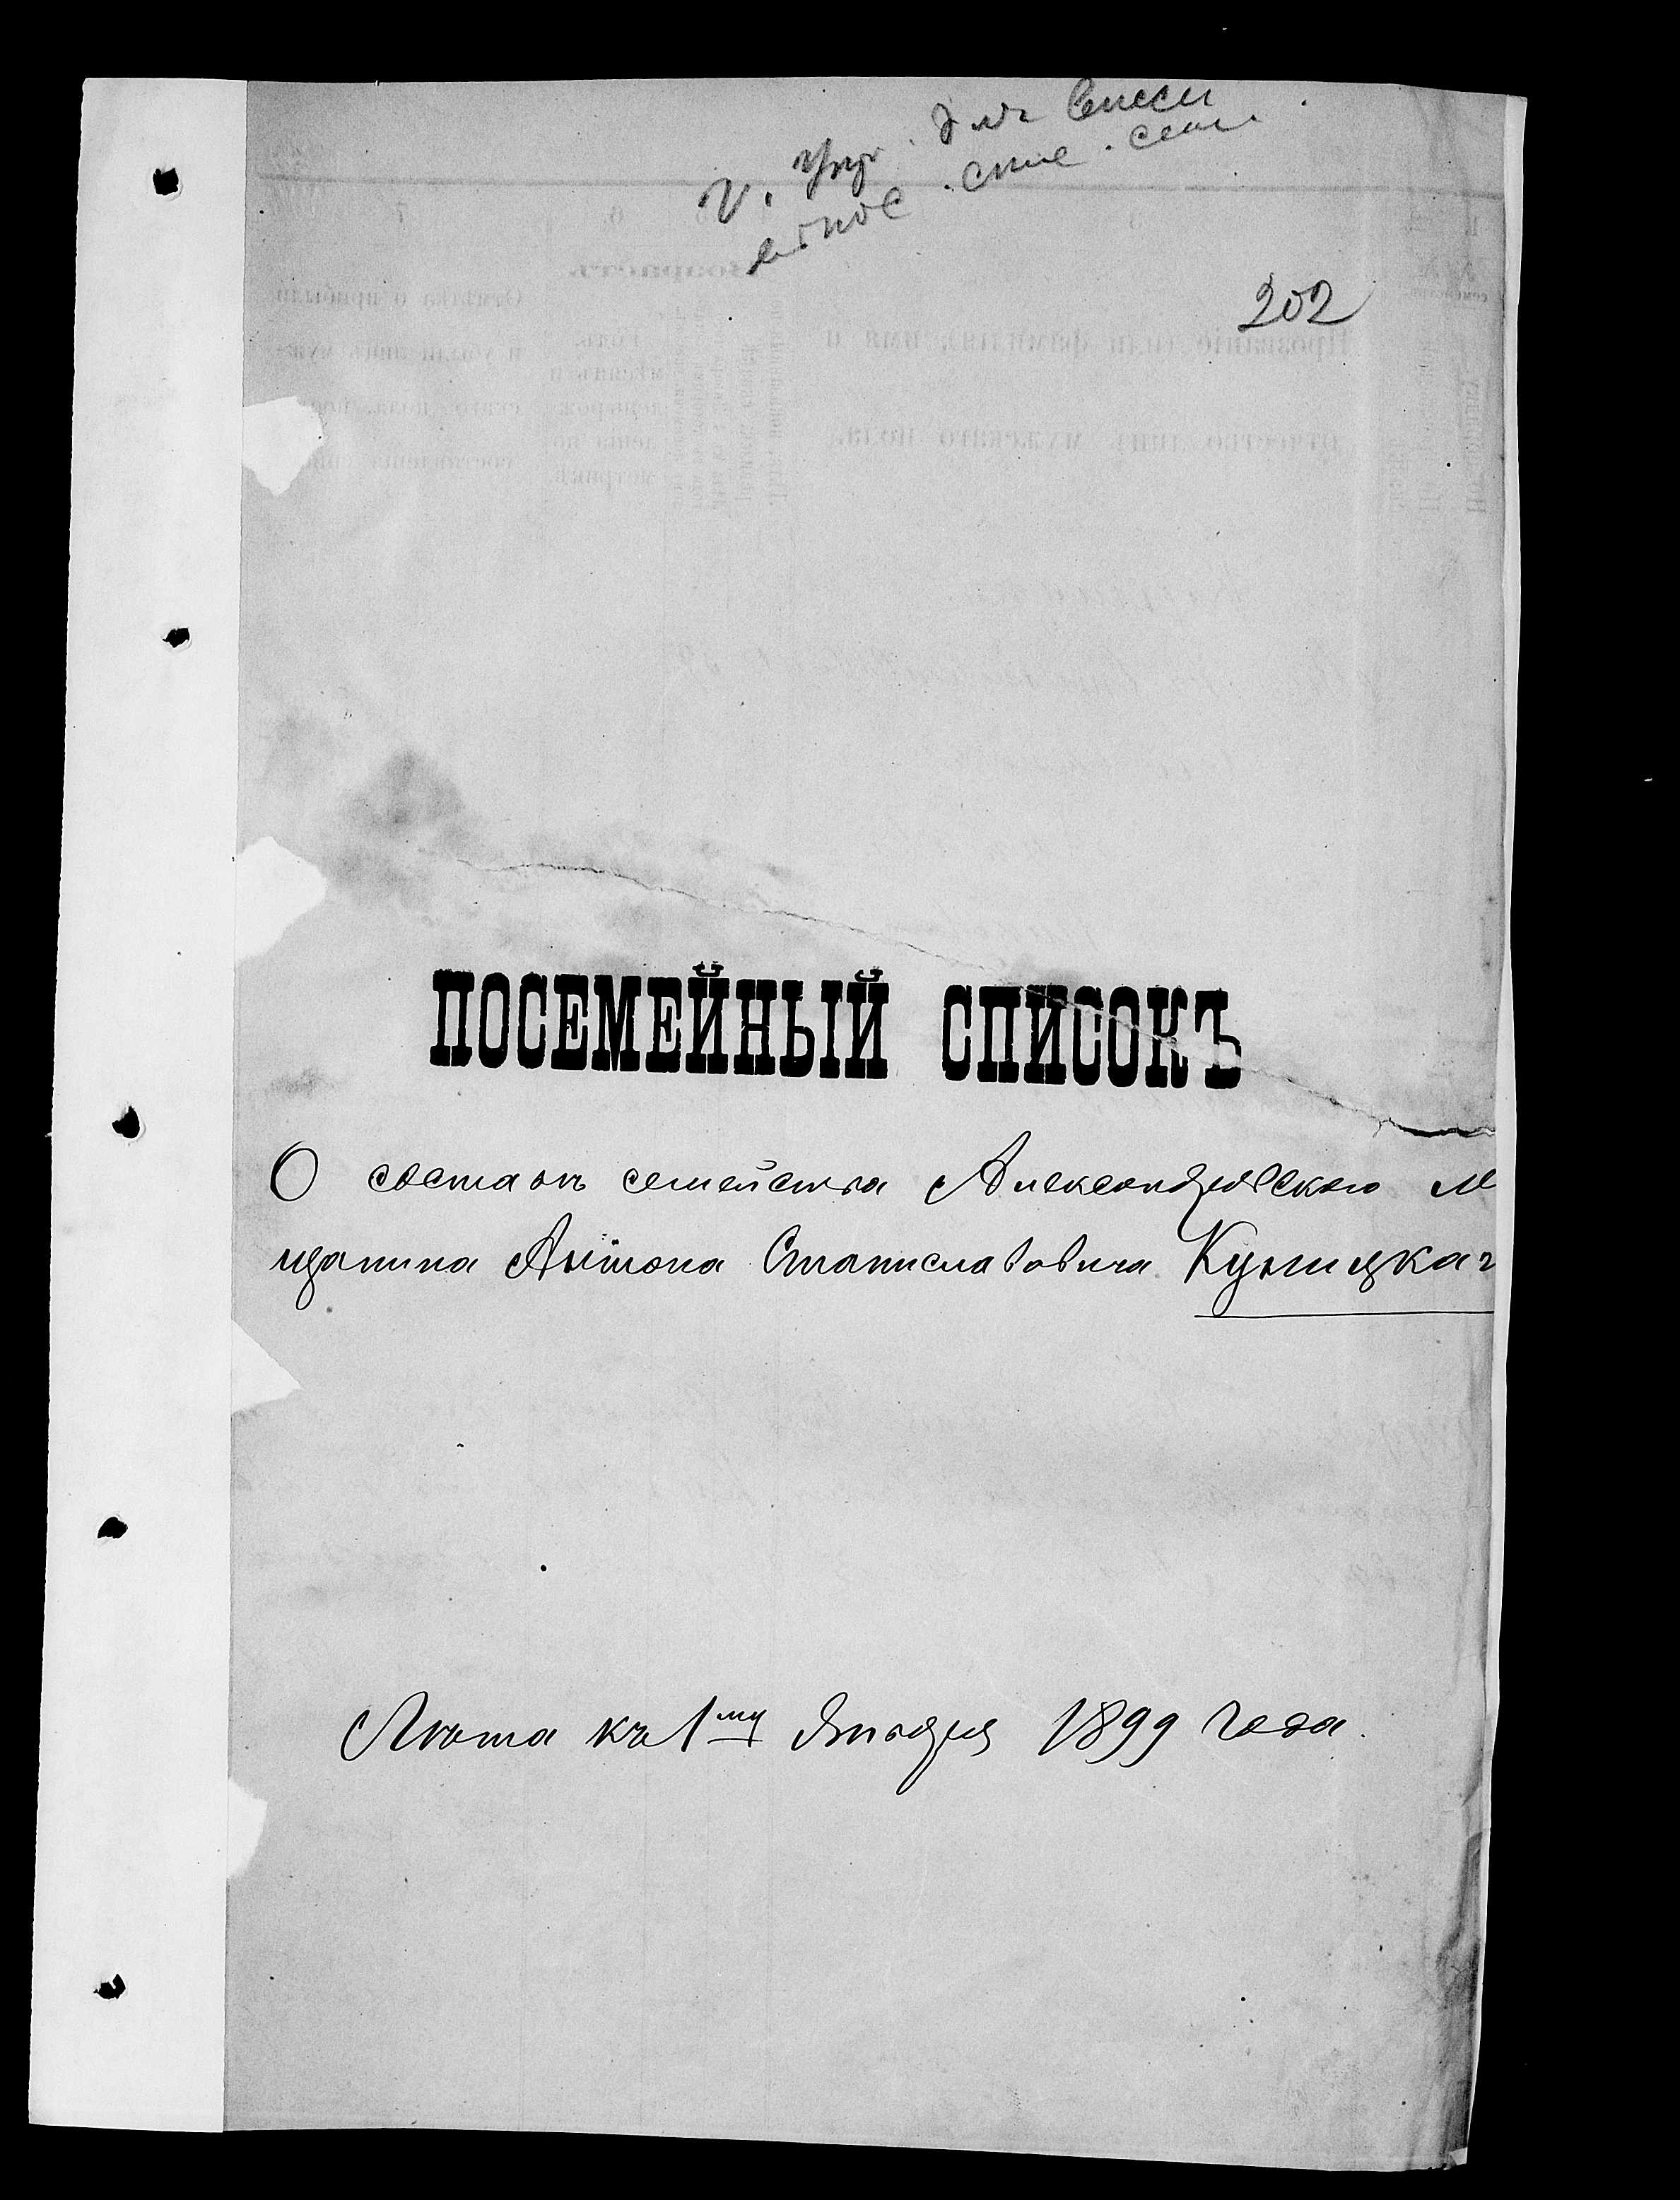 202
ПОСЕМЕЙНЫЙ СПИСОКЪ
О составѣ семейства Александровскаго м
щанина Антона Станиславовича Куницкаг
Лѣта къ 1му Января 1899 года.